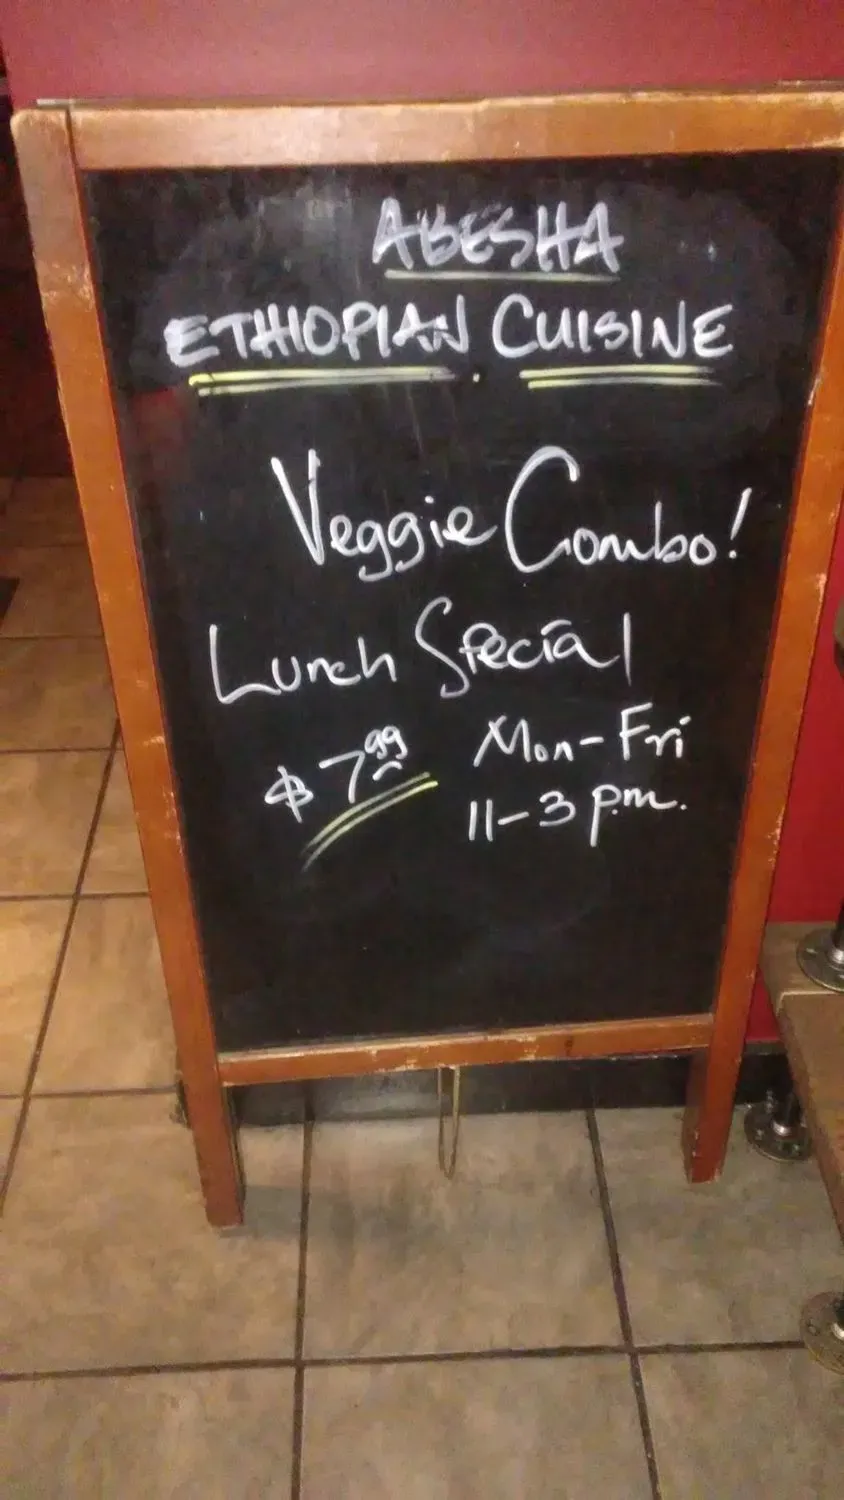 ABESHA
ETHIOPIAN CUISINE
Veggie Combo!
Lunch Special
$7.99 Mon-Fri
11-3 p.m.